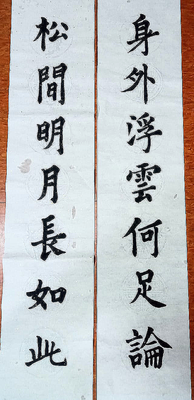 身外浮雲何足論
松間明月長如此